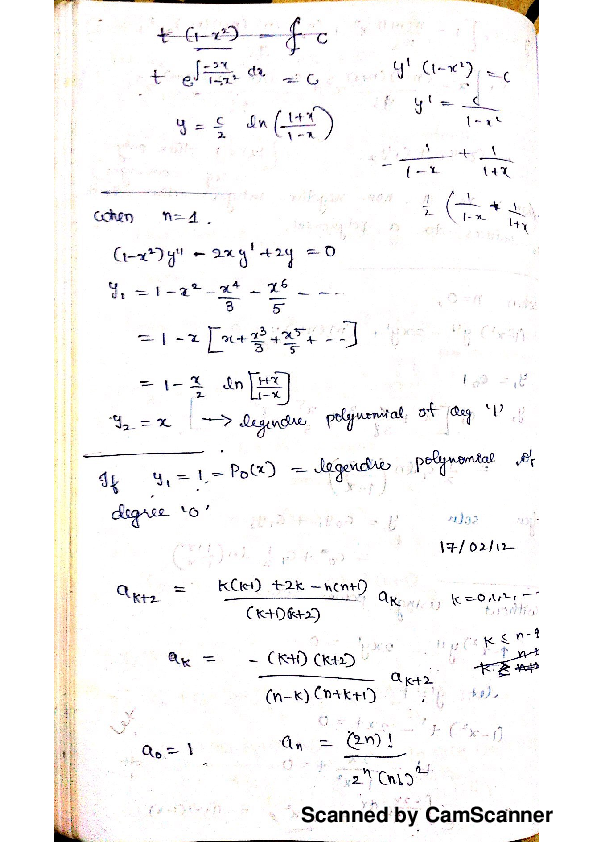 t (1-x²) = c
t e^∫(-2x/(1-x²)) dx = c
y = c/2 ln((1+x)/(1-x))
y' (1-x²) = c
y' = c/(1-x²)
1/(1-x) + 1/(1+x)
1/2 (1/(1-x) + 1/(1+x)
when n=1.
(1-x²)y'' - 2xy' + 2y = 0
y₁ = 1 - x² - x⁴/3 - x⁶/5 - ---
= 1 - x [x + x³/3 + x⁵/5 + --]
= 1 - x/2 ln[(1+x)/(1-x)]
y₂ = x → legendre polynomial of deg '1'
If y₁ = 1 = P₀(x) = legendre polynomial of
degree '0'
17/02/12
a_{k+2} = (k(k-1) + 2k - n(n+1))/((k+1)(k+2)) a_k k=0,1,2,--
a_k = -(k+1)(k+2)/((n-k)(n+k+1)) a_{k+2} k ≤ n-2
Let
a₀ = 1 a_n = (2n)!/(2ⁿ(n!)²)
Scanned by CamScanner